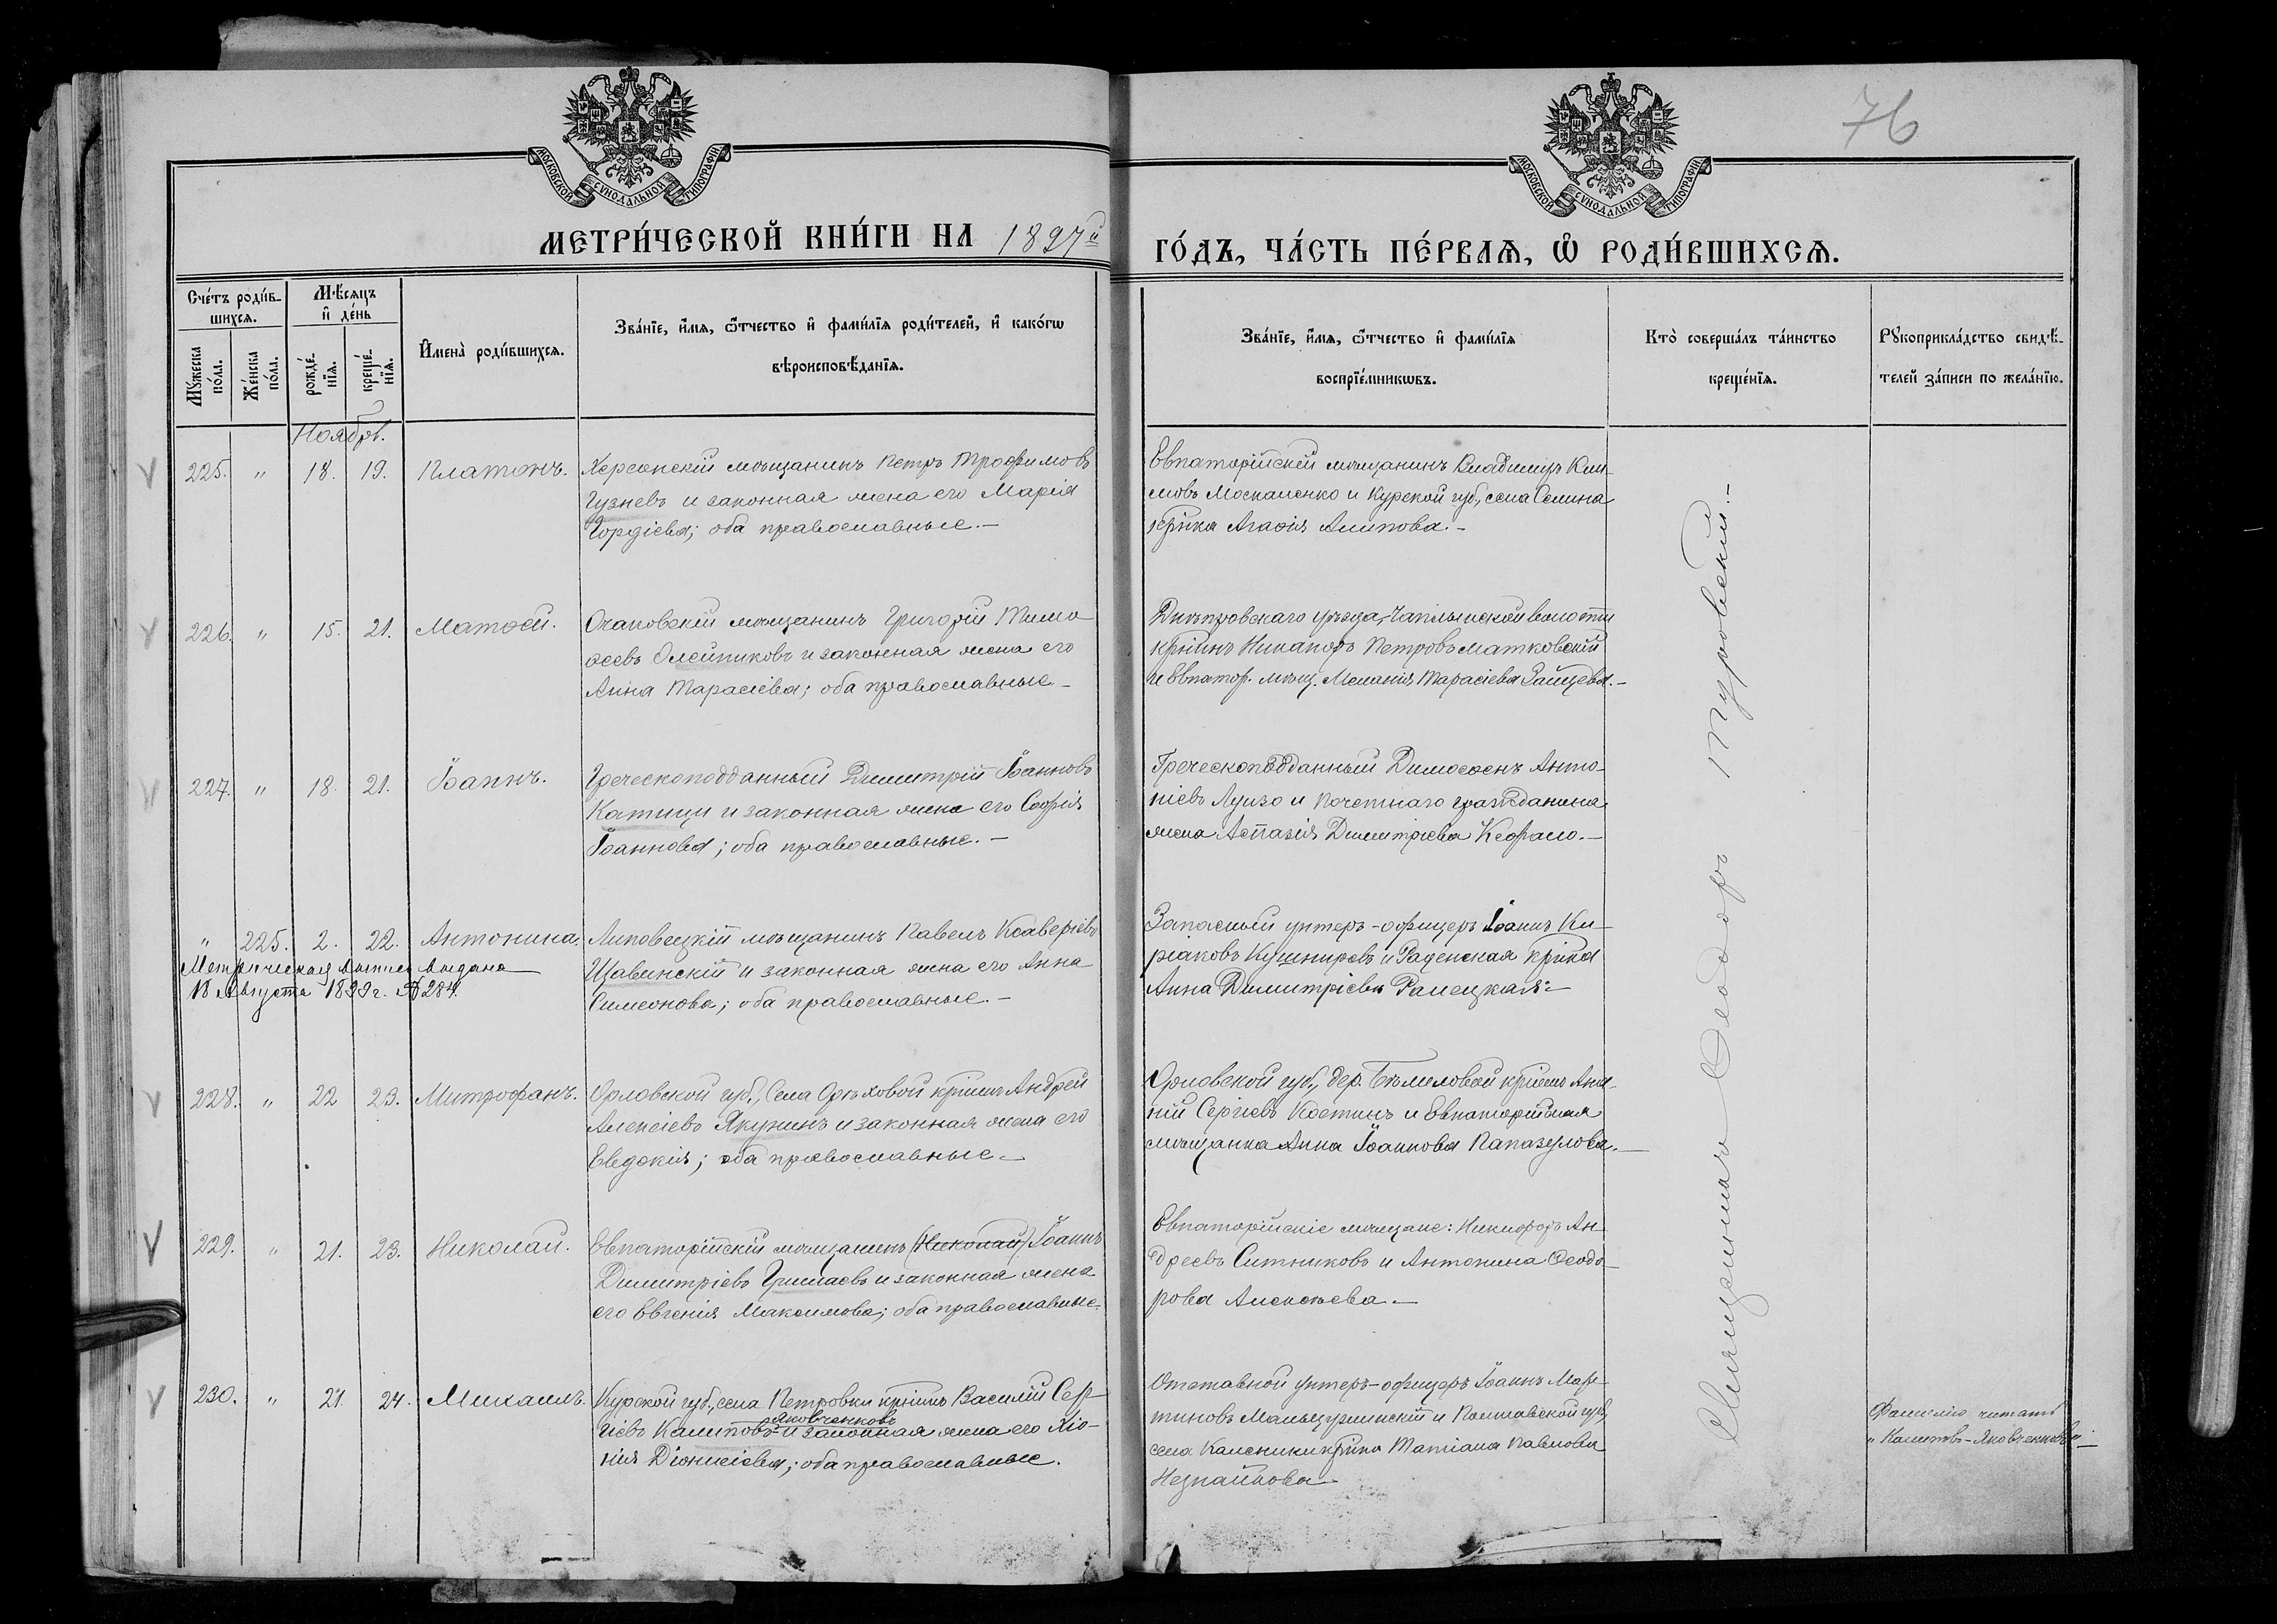 76
МОСКОВСКОЙ СѴНОДАЛЬНОЙ ТИПОГРАФІИ
МОСКОВСКОЙ СѴНОДАЛЬНОЙ ТИПОГРАФІИ
МЕТРИ́ЧЕСКОЙ КНИ́ГИ НА 1897й
ГО́ДЪ, ЧА́СТЬ ПЕ́РВАЯ, Ѽ РОДИ́ВШИХСЯ.
Сче́тъ роди́в-
шихся.
Мꙋ́жеска по́ла.
Же́нска по́ла.
Мѣ́сяцъ и҆ де́нь
рожде́-нїя.
креще́-нїя.
И҆мена̀ роди́вшихся.
Зва́нїе, и҆́мя, ѻ҆́тчество и҆ фами́лїя роди́телей, и҆ како́гѡ
вѣроисповѣ́данїя.
Зва́нїе, и҆́мя, ѻ҆́тчество и҆ фами́лїя
воспрїе́мникѡвъ.
Кто̀ соверша́лъ та́инство
креще́нїя.
Рꙋкоприкла́дство свидѣ́-
телей за́писи по жела́нїю.
Ноябрь.
225. " 18. 19. Платонъ.
Херсонскій мѣщанинъ Петръ Трофимовъ
Гузневъ и законная жена его Марія
Гордіева; оба православные.—
Евпаторійскій мѣщанинъ Владиміръ Кли-
мовъ Москаленко и Курской губ., села Селина
кр҃нка Агаѳія Алипова.—
226. " 15. 21. Матѳей.
Очаковскій мѣщанинъ Григорій Тимо-
ѳеевъ Олейниковъ и законная жена его
Анна Тарасіева; оба православные—
Днѣпровскаго уѣзда, Чаплынской волости
кр҃нинъ Никаноръ Петровъ Матковскій
и Евпатор. мѣщ. Меланія Тарасіева Зайцева.—
227. " 18. 21. Іоаннъ.
Греческоподданный Димитрій Іоанновъ
Катици и законная жена его Софія
Іоаннова; оба православные.—
Греческоподданный Димосѳенъ Анто-
ніевъ Луизо и почетнаго гражданина
жена Аспазія Димитріева Кефало.—
" 225. 2. 22. Антонина.
Метрическая выпись выдана
18 Августа 1899 г. № 284.
Липовецкій мѣщанинъ Павелъ Ксаверіевъ
Щавинскій и законная жена его Анна
Симеонова; оба православные.—
Запасный унтеръ-офицеръ Іоаннъ Ки-
ріаковъ Кушниревъ и кр҃нка
Анна Димитріева
228. " 22 23. Митрофанъ.
Орловской губ., села Орѣховой кр҃нинъ Андрей
Алексіевъ Якунинъ и законная жена его
Евдокія; оба православные—
Орловской губ., дер. кр҃нинъ Ана-
ній Сергіевъ Костинъ и Евпаторійская
мѣщанка Анна Іоаннова Папазулова.—
229. " 21. 23. Николай.
Евпаторійскій мѣщанинъ (Николай) Іоаннъ
Димитріевъ Гришаевъ и законная жена
его Евгенія Максимова; оба православные.
Евпаторійскіе мѣщане: Никифоръ Ан-
дреевъ Ситниковъ и Антонина Ѳеодо-
рова Алексѣева.—
230. " 21. 24. Михаилъ.
Курской губ., села Петровки кр҃нинъ Василій Сер-
Яковченковъ
гіевъ Калитовъ и законная жена его Хіо-
нія Діонисіева; оба православные.
Отставной унтеръ-офицеръ Іоаннъ Мар-
тиновъ и Полтавской губ.,
села кр҃нка Татіана Павлова
Незнайкова—
Фамилію читать
"Калитовъ-Яковченковъ".—
Священникъ Ѳеодоръ Туровскій.—